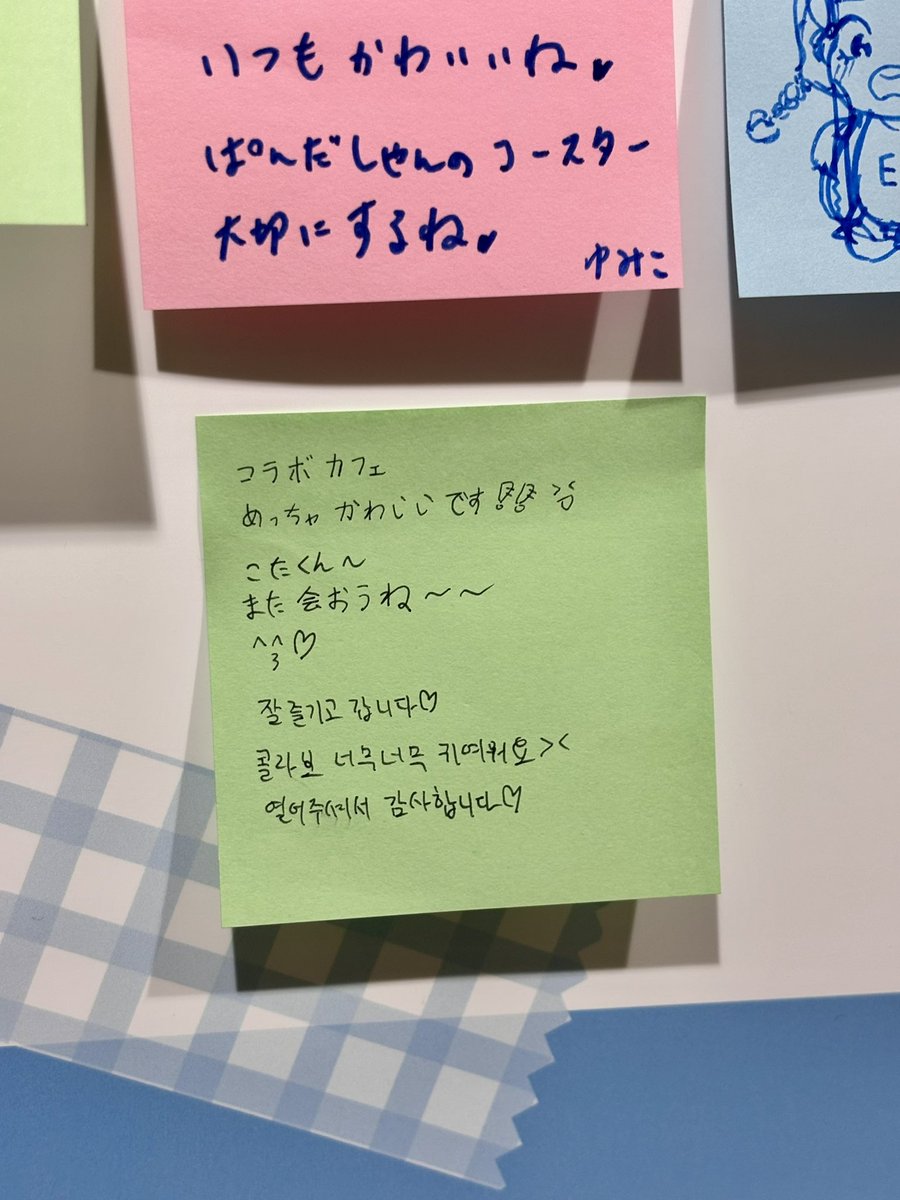 いつもかわいいね♥
ぱんだしゃんのコースター
大切にするね♥
ゆみこ
E
コラボカフェ
めっちゃかわいいです
こたくん〜
また会おうね〜〜
^^♡
3
잘 즐기고 갑니다♡
콜라보 너무너무 키여워요><
열어주셔서 감사합니다♡